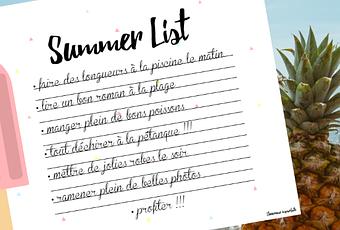 Summer List
• faire des longueurs à la piscine le matin
• lire un bon roman à la plage
• manger plein de bons poissons
• tout déchirer à la pétanque !!!
• mettre de jolies robes le soir
• ramener plein de belles photos
• profiter !!!